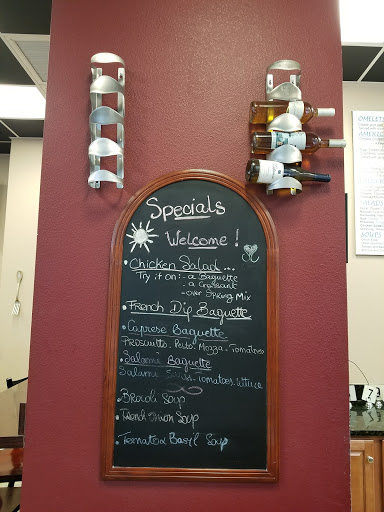 Specials
Welcome!
• Chicken Salad...
Try it on: - a Baguette
- a Croissant
- over Spring Mix
• French Dip Baguette
• Caprese Baguette
Prosciutto - Pesto Mozza - Tomatoes
• Salami Baguette
Salami Tomatoes
• Brocoli Soup
• French Onion Soup
• Tomato & Basil Soup
OMELETS
SALADS
SOUPS